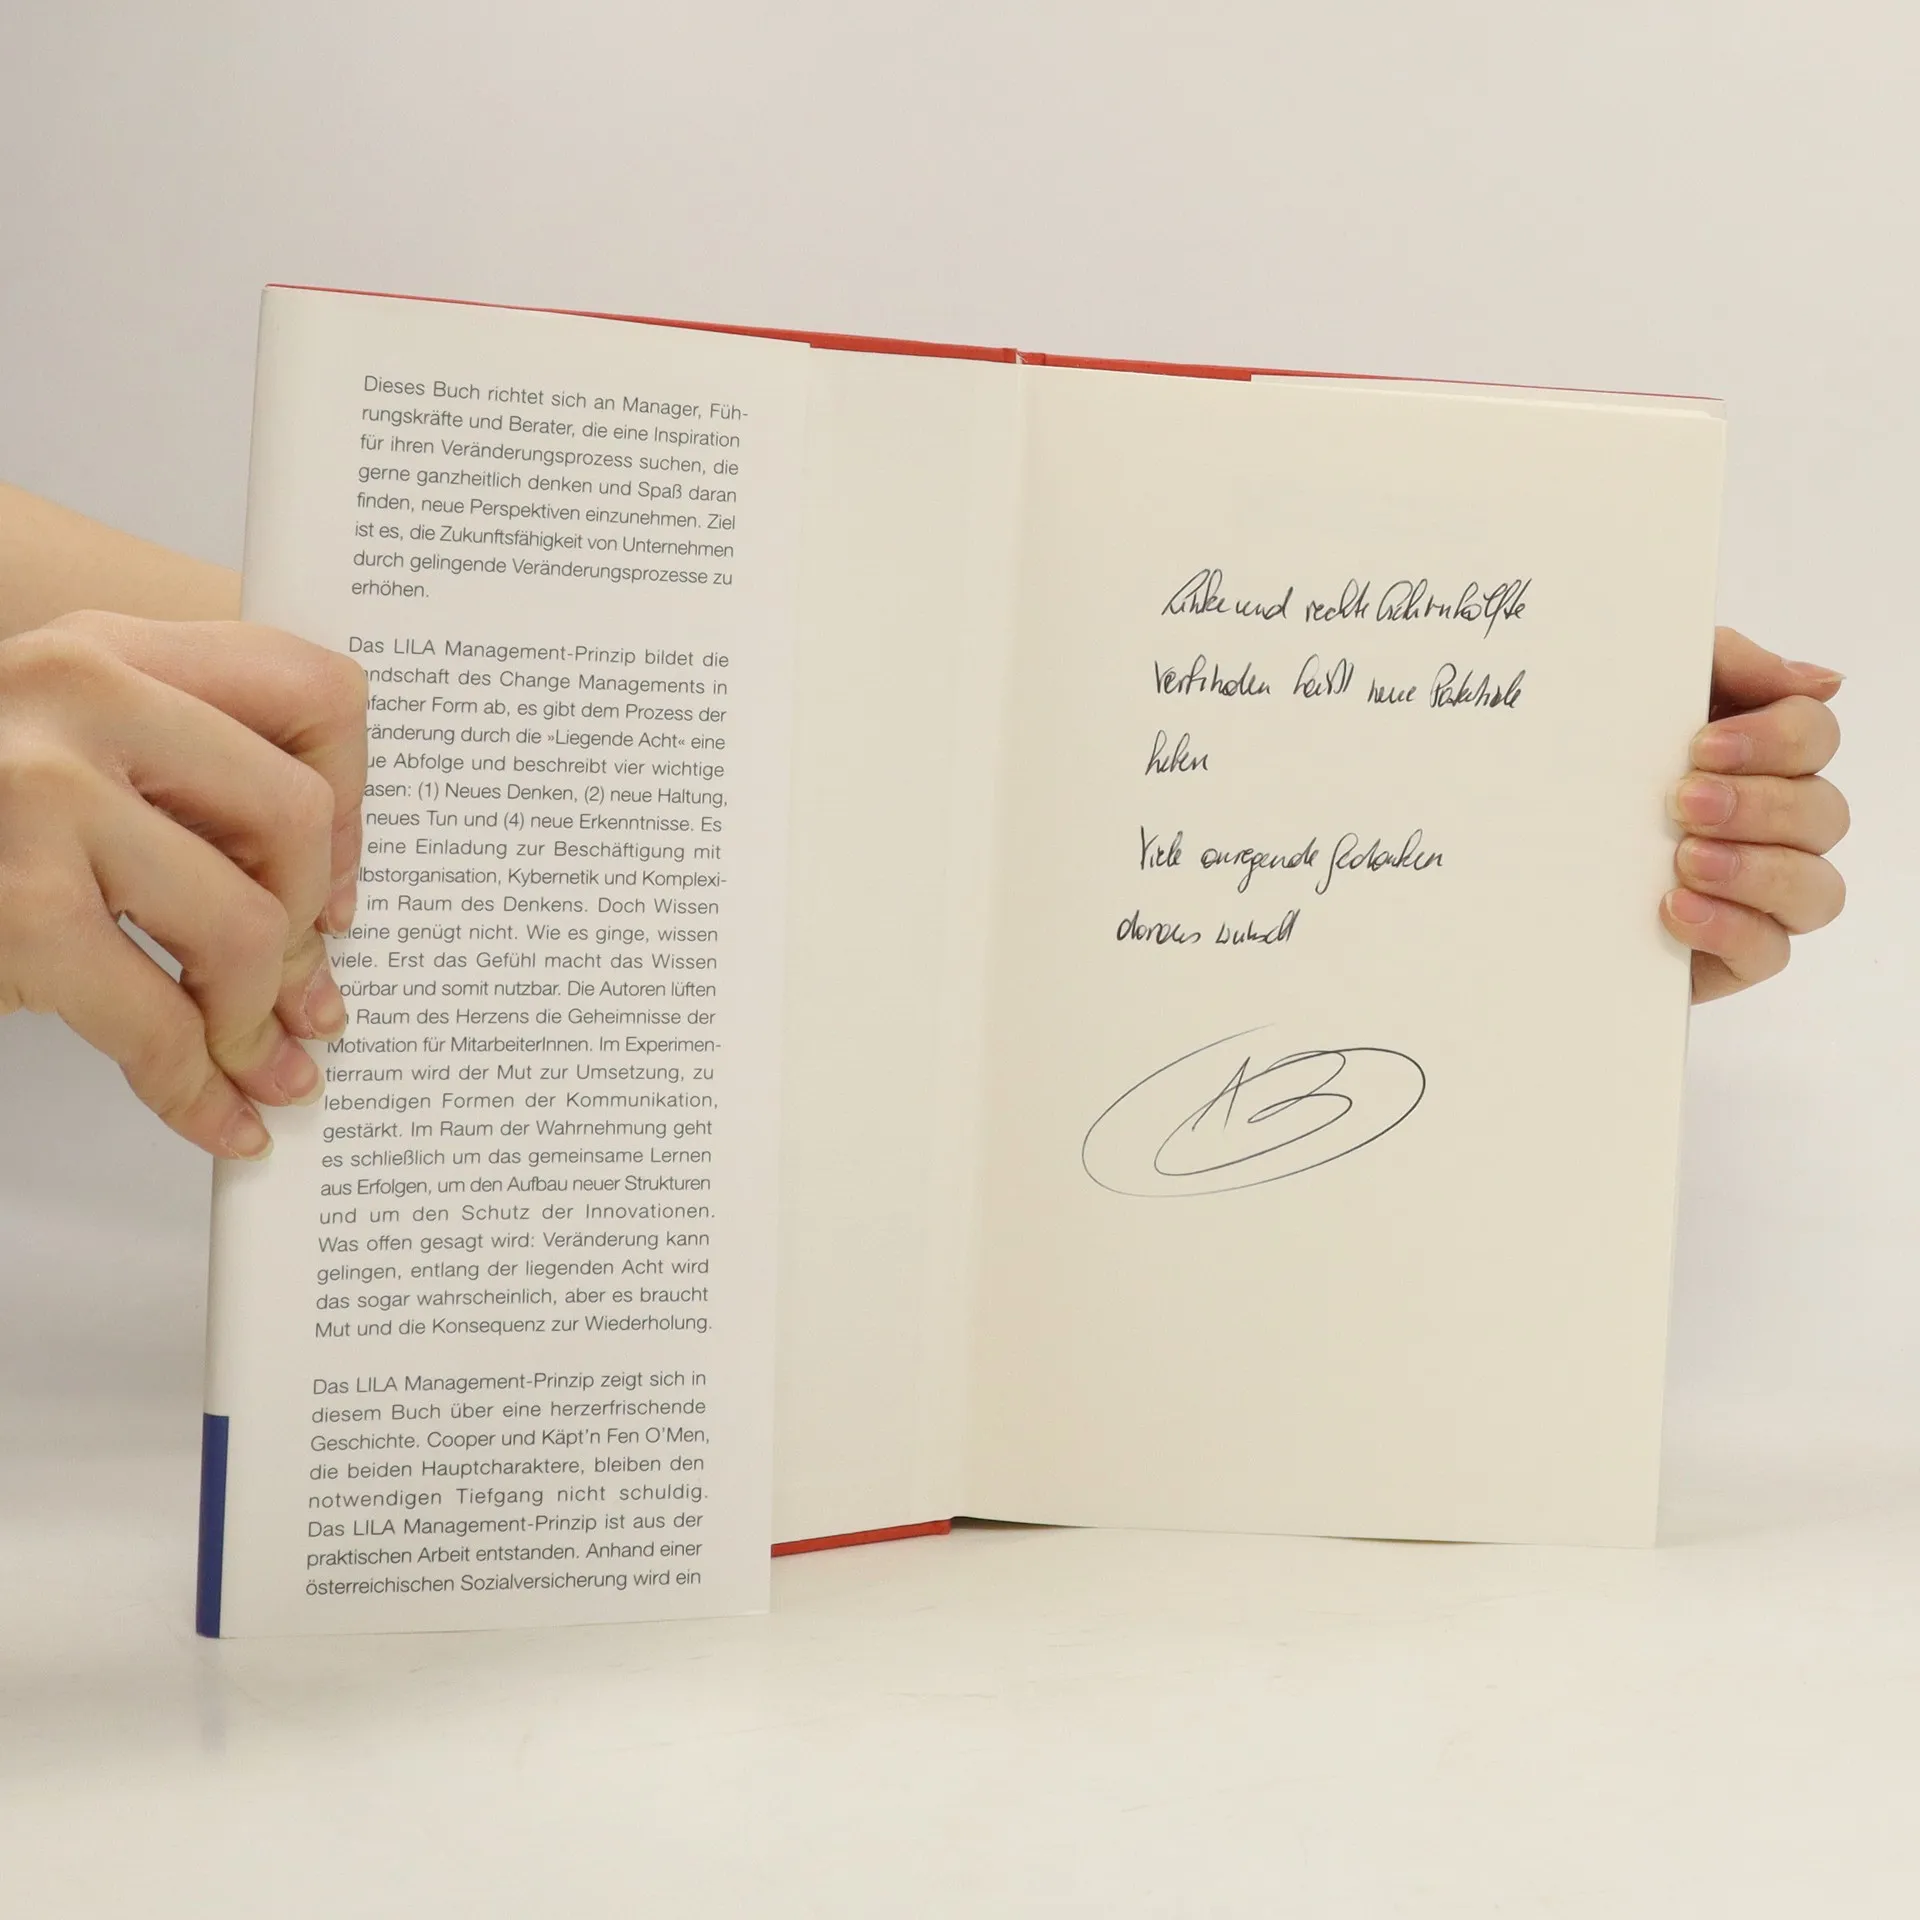 Dieses Buch richtet sich an Manager, Füh-
rungskräfte und Berater, die eine Inspiration
für ihren Veränderungsprozess suchen, die
gerne ganzheitlich denken und Spaß daran
finden, neue Perspektiven einzunehmen. Ziel
ist es, die Zukunftsfähigkeit von Unternehmen
durch gelingende Veränderungsprozesse zu
erhöhen.
Das LILA Management-Prinzip bildet die
ndschaft des Change Managements in
nfacher Form ab, es gibt dem Prozess der
ränderung durch die »Liegende Acht« eine
ue Abfolge und beschreibt vier wichtige
asen: (1) Neues Denken, (2) neue Haltung,
neues Tun und (4) neue Erkenntnisse. Es
eine Einladung zur Beschäftigung mit
lbstorganisation, Kybernetik und Komplexi-
im Raum des Denkens. Doch Wissen
leine genügt nicht. Wie es ginge, wissen
viele. Erst das Gefühl macht das Wissen
pürbar und somit nutzbar. Die Autoren lüften
Raum des Herzens die Geheimnisse der
Motivation für MitarbeiterInnen. Im Experimen-
tierraum wird der Mut zur Umsetzung, zu
lebendigen Formen der Kommunikation,
gestärkt. Im Raum der Wahrnehmung geht
es schließlich um das gemeinsame Lernen
aus Erfolgen, um den Aufbau neuer Strukturen
und um den Schutz der Innovationen.
Was offen gesagt wird: Veränderung kann
gelingen, entlang der liegenden Acht wird
das sogar wahrscheinlich, aber es braucht
Mut und die Konsequenz zur Wiederholung.
Das LILA Management-Prinzip zeigt sich in
diesem Buch über eine herzerfrischende
Geschichte. Cooper und Käpt'n Fen O'Men,
die beiden Hauptcharaktere, bleiben den
notwendigen Tiefgang nicht schuldig.
Das LILA Management-Prinzip ist aus der
praktischen Arbeit entstanden. Anhand einer
österreichischen Sozialversicherung wird ein
Linke und rechte Gehirnhälfte
verbinden heißt neue Potentiale
heben
Viele anregende Gedanken
daraus wünscht